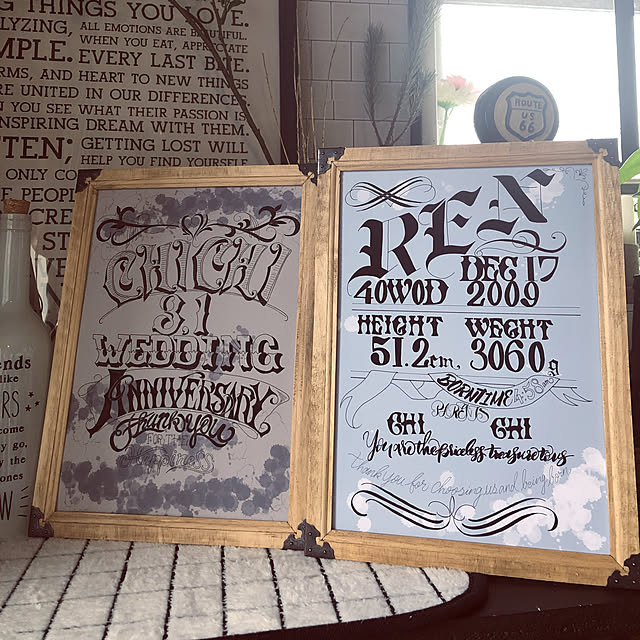 G THINGS YOU LOVE.
LYZING, ALL EMOTIONS ARE BEAUTIFUL.
WHEN YOU EAT, APPRECIATE
MPLE. EVERY LAST BITE.
RMS, AND HEART TO NEW THINGS
RE UNITED IN OUR DIFFERENCES
YOU SEE WHAT THEIR PASSION IS
NSPIRING DREAM WITH THEM.
TEN; GETTING LOST WILL
HELP YOU FIND YOURSELF
ONLY CO
PEOPLE
CRE
ST
ROUTE
US
66
CHICHI
3.1
WEDDING
ANNIVERSARY
Thank you
FOR THE
Happiness
REN
DEC 17
40W0D 2009
HEIGHT WEGHT
51.2cm 3060g
BURNTIME
CHI CHI
You are the priceless treasure to us
Thank you for choosing us and being born
ends
like
RS
come
y go,
the
ones
W